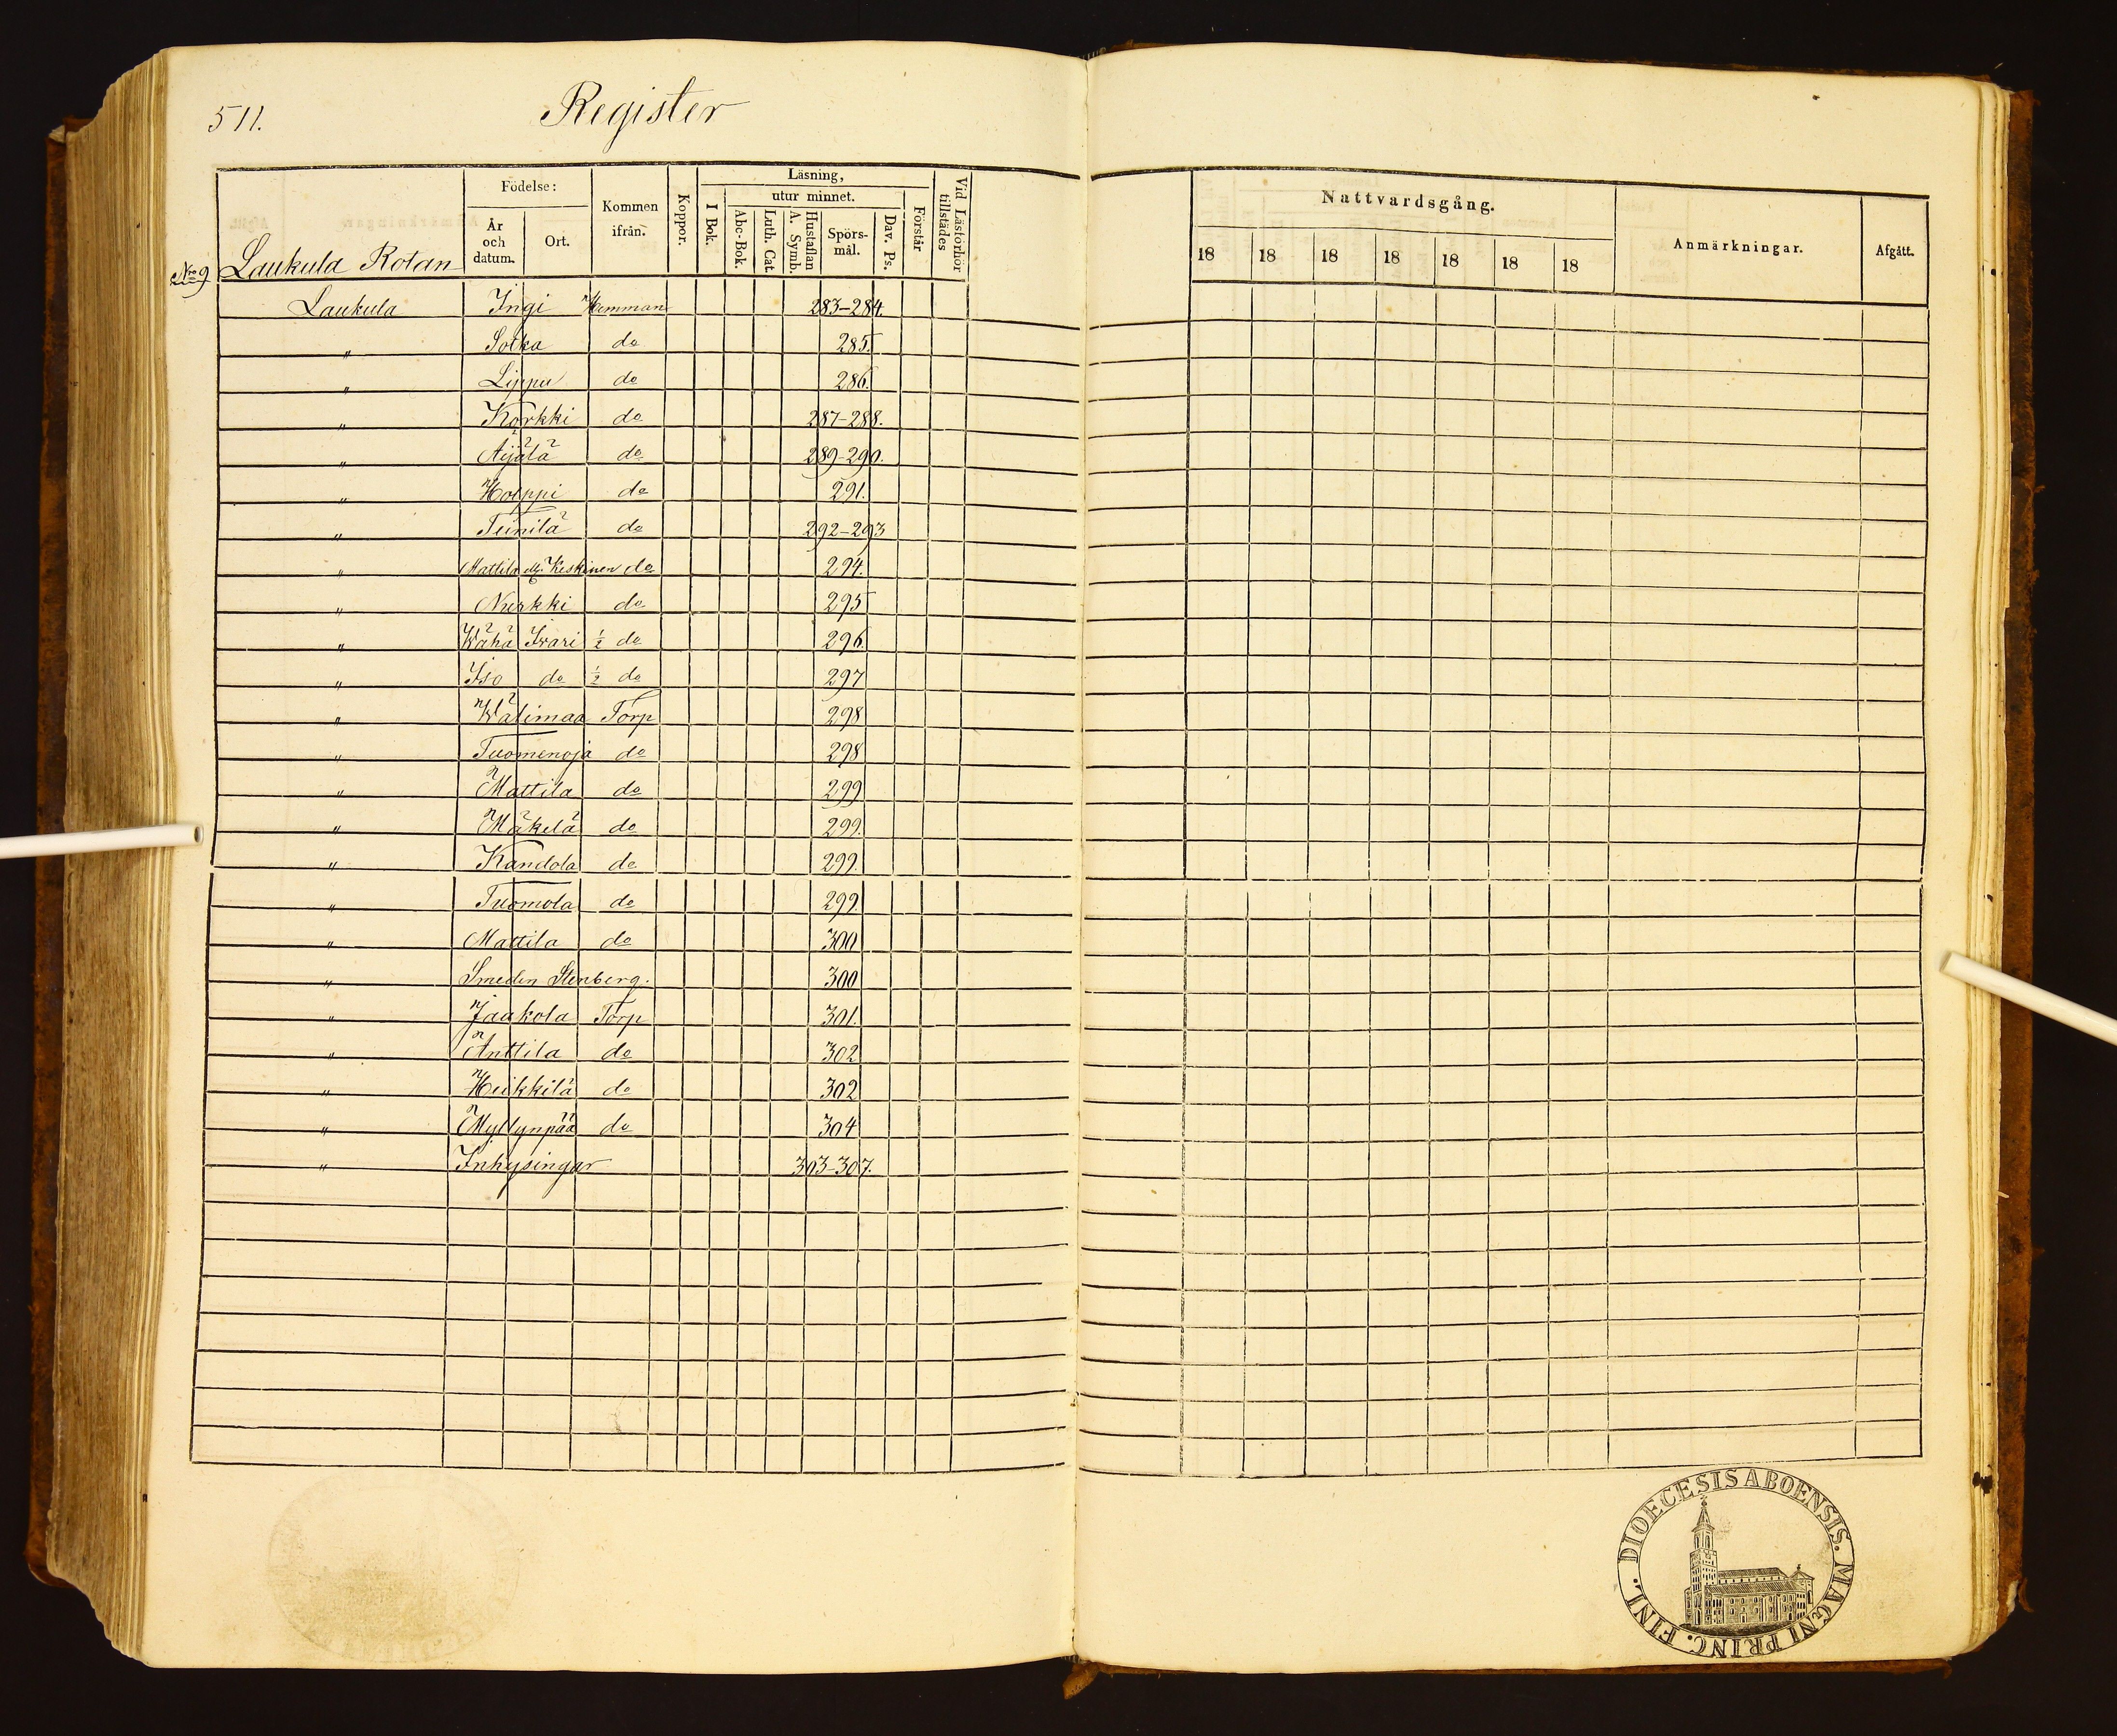 511.
Register
Födelse:
År och datum.
Ort.
Kommen ifrån.
Koppor.
Läsning,
I Bok.
utur minnet.
Abc-Bok.
Luth. Cat.
Hustaflan A. Symb.
Spörsmål.
Dav. Ps.
Förstår
Vid Läsförhör tillstädes
Nattvardsgång.
18 18 18 18 18 18 18
Anmärkningar.
Afgått.
Nro 9 Laukula Rotan
Laukula Ingi Hemman 283-284.
" Sotka do 285.
" Lippu do 286.
" Korkki do 287-288.
" Äijälä do 289-290.
" Holppi do 291.
" Teinilä do 292-293
" Mattila ell. Keskinen do 294.
" Nurkki do 295
" Wähä Iwari ½ do 296
" Iso do ½ do 297
" Wälimaa Torp 298
" Tuomenoja do 298
" Mattila do 299
" Mäkelä do 299.
" Kandola do 299.
" Tuomola do 299.
" Mattila do 300
" Smeden Stenberg. 300
" Jaakola Torp 301.
" Anttila do 302
" Heikkilä do 302
" Myllynpää do 304
" Inhysingar 303-307.
DIOECESIS ABOENSIS. MAGNI PRINC. FINL.